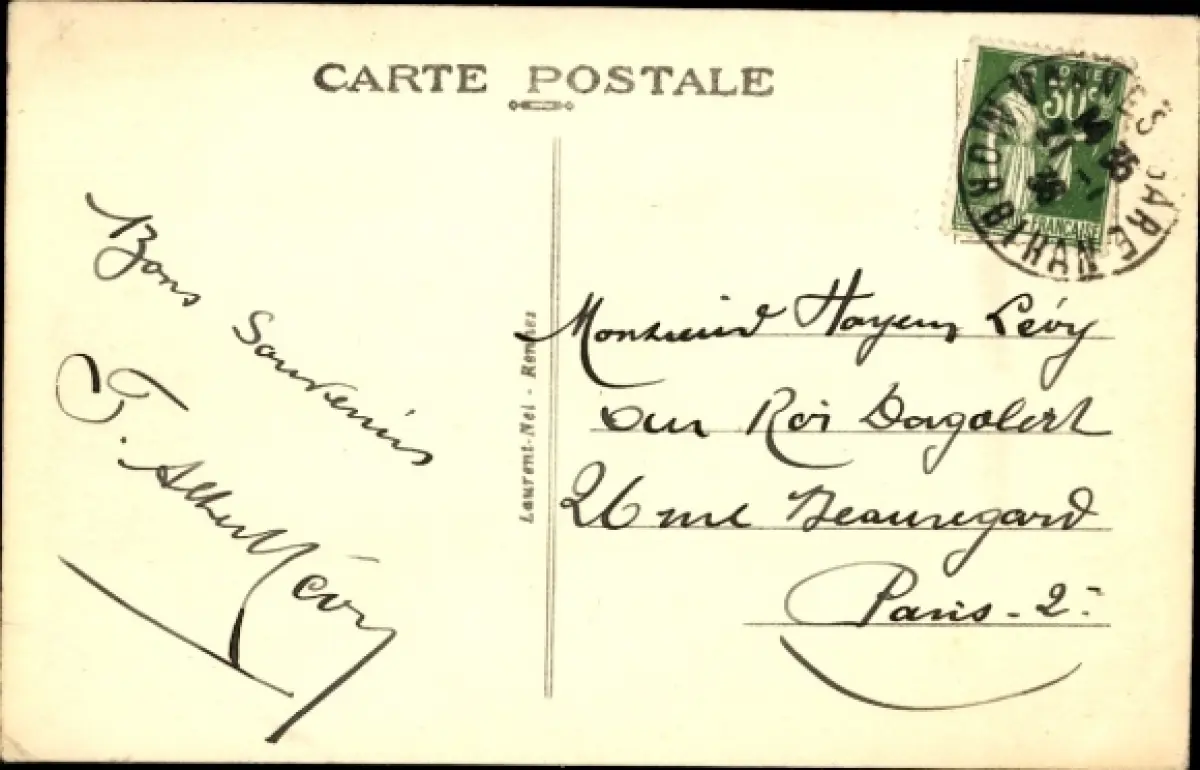 CARTE POSTALE
POSTES
50c
FRANÇAISE
VANNES GARE
MORBIHAN
35
Bons Souvenirs
J. Albert Lévy
Laurent-Nel - Rennes
Monsieur Hayem Lévy
au Roi Dagobert
26 rue Beauregard
Paris - 2e